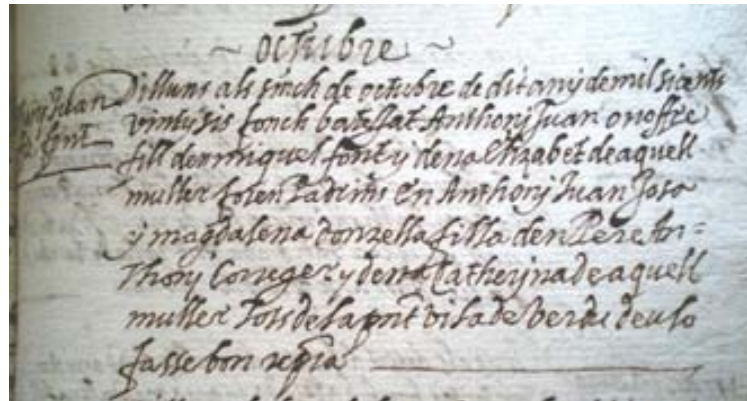 ~ octubre ~
Dilluns als sinch de octubre de dit any de mil sicents
vint y sis fonch batejat Anthonj Juan onoffre
fill den miquel font y de na Elizabet de aquell
muller foren Padrins En Anthonj Juan
y magdalena donzella filla den Pere An=
thonj Correger y de na Catherjna de aquell
muller Tots de la pnt vila de Verdu deu lo
fasse bon
Juan
font